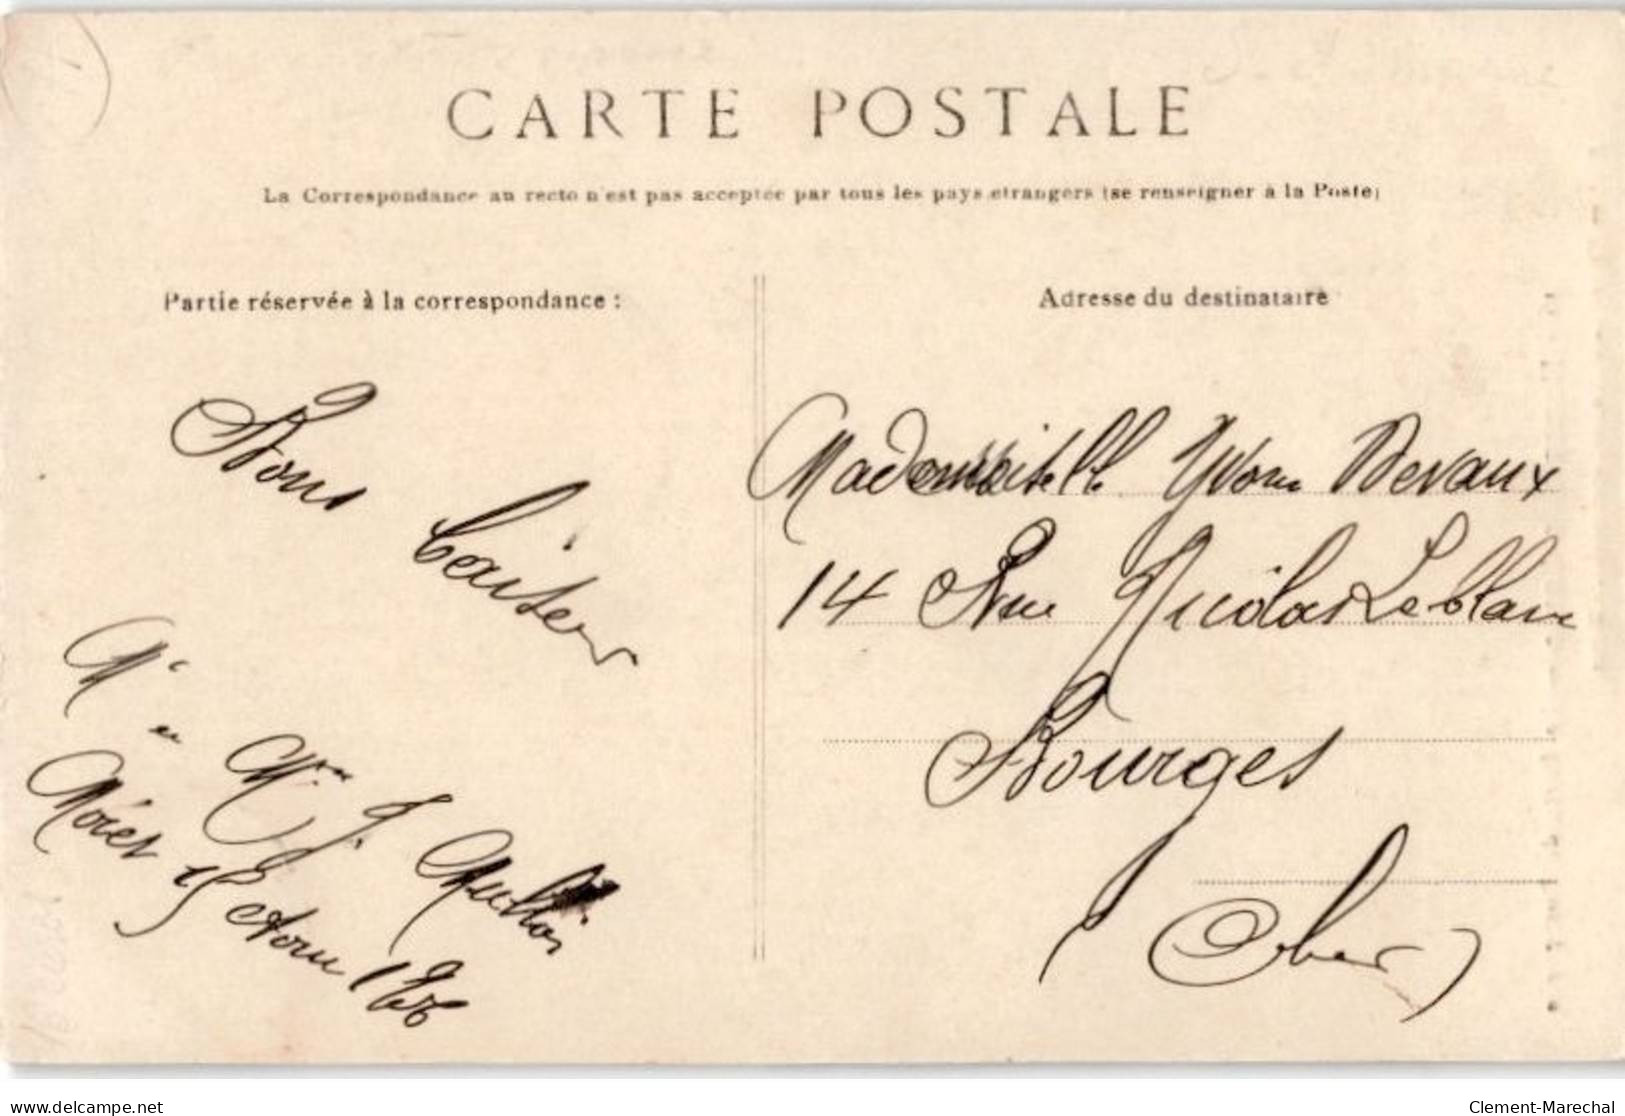 CARTE POSTALE
La Correspondance au recto n'est pas acceptée par tous les pays étrangers (se renseigner à la Poste)
Partie réservée à la correspondance :
Adresse du destinataire
Bons baisers
Mr et Mme J.
Moret 15 1906
Mademoiselle Yvonne Devaux
14 Rue Nicolas Leblanc
Bourges
(Cher)
delcampe.net
Clement-Marechal